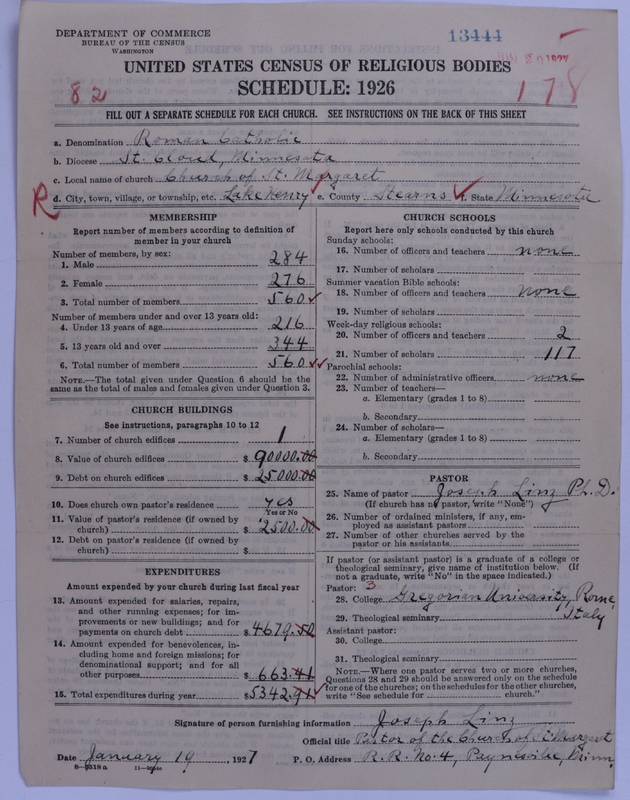 DEPARTMENT OF COMMERCE
BUREAU OF THE CENSUS
WASHINGTON
13444
UNITED STATES CENSUS OF RELIGIOUS BODIES
SCHEDULE: 1926
82
178
FILL OUT A SEPARATE SCHEDULE FOR EACH CHURCH. SEE INSTRUCTIONS ON THE BACK OF THIS SHEET
a. Denomination Roman Catholic
b. Diocese St. Cloud, Minnesota
c. Local name of church Church of St. Margaret
R d. City, town, village, or township, etc. Lake Henry e. County Stearns f. State Minnesota
MEMBERSHIP
Report number of members according to definition of
member in your church
Number of members, by sex:
1. Male 284
2. Female 276
3. Total number of members 560
Number of members under and over 13 years old:
4. Under 13 years of age 216
5. 13 years old and over 344
6. Total number of members 560
NOTE.—The total given under Question 6 should be
the same as the total of males and females given under Question 3.
CHURCH BUILDINGS
See instructions, paragraphs 10 to 12
7. Number of church edifices 1
8. Value of church edifices $ 90000.00
9. Debt on church edifices $ 25000.00
10. Does church own pastor's residence yes
Yes or No
11. Value of pastor's residence (if owned by
church) $ 2500.00
12. Debt on pastor's residence (if owned by
church) $
EXPENDITURES
Amount expended by your church during last fiscal year
13. Amount expended for salaries, repairs,
and other running expenses; for im-
provements or new buildings; and for
payments on church debt $ 4679.50
14. Amount expended for benevolences, in-
cluding home and foreign missions; for
denominational support; and for all
other purposes $ 663.41
15. Total expenditures during year $ 5342.91
CHURCH SCHOOLS
Report here only schools conducted by this church
Sunday schools:
16. Number of officers and teachers none
17. Number of scholars
Summer vacation Bible schools:
18. Number of officers and teachers none
19. Number of scholars
Week-day religious schools:
20. Number of officers and teachers 2
21. Number of scholars 117
Parochial schools:
22. Number of administrative officers none
23. Number of teachers—
a. Elementary (grades 1 to 8)
b. Secondary
24. Number of scholars—
a. Elementary (grades 1 to 8)
b. Secondary
PASTOR
25. Name of pastor Joseph Linz Ph. D.
(If church has no pastor, write "None")
26. Number of ordained ministers, if any, em-
ployed as assistant pastors
27. Number of other churches served by the
pastor or his assistants
If pastor (or assistant pastor) is a graduate of a college or
theological seminary, give name of institution below. (If
not a graduate, write "No" in the space indicated.)
Pastor: 3
28. College Gregorian University, Rome,
29. Theological seminary Italy
Assistant pastor:
30. College
31. Theological seminary
NOTE.—Where one pastor serves two or more churches,
Questions 28 and 29 should be answered only on the schedule
for one of the churches; on the schedules for the other churches,
write "See schedule for church."
Signature of person furnishing information Joseph Linz
Official title Pastor of the Church of St. Margaret
Date January 19, 1927 P. O. Address R. R. No. 4, Paynesville, Minn.